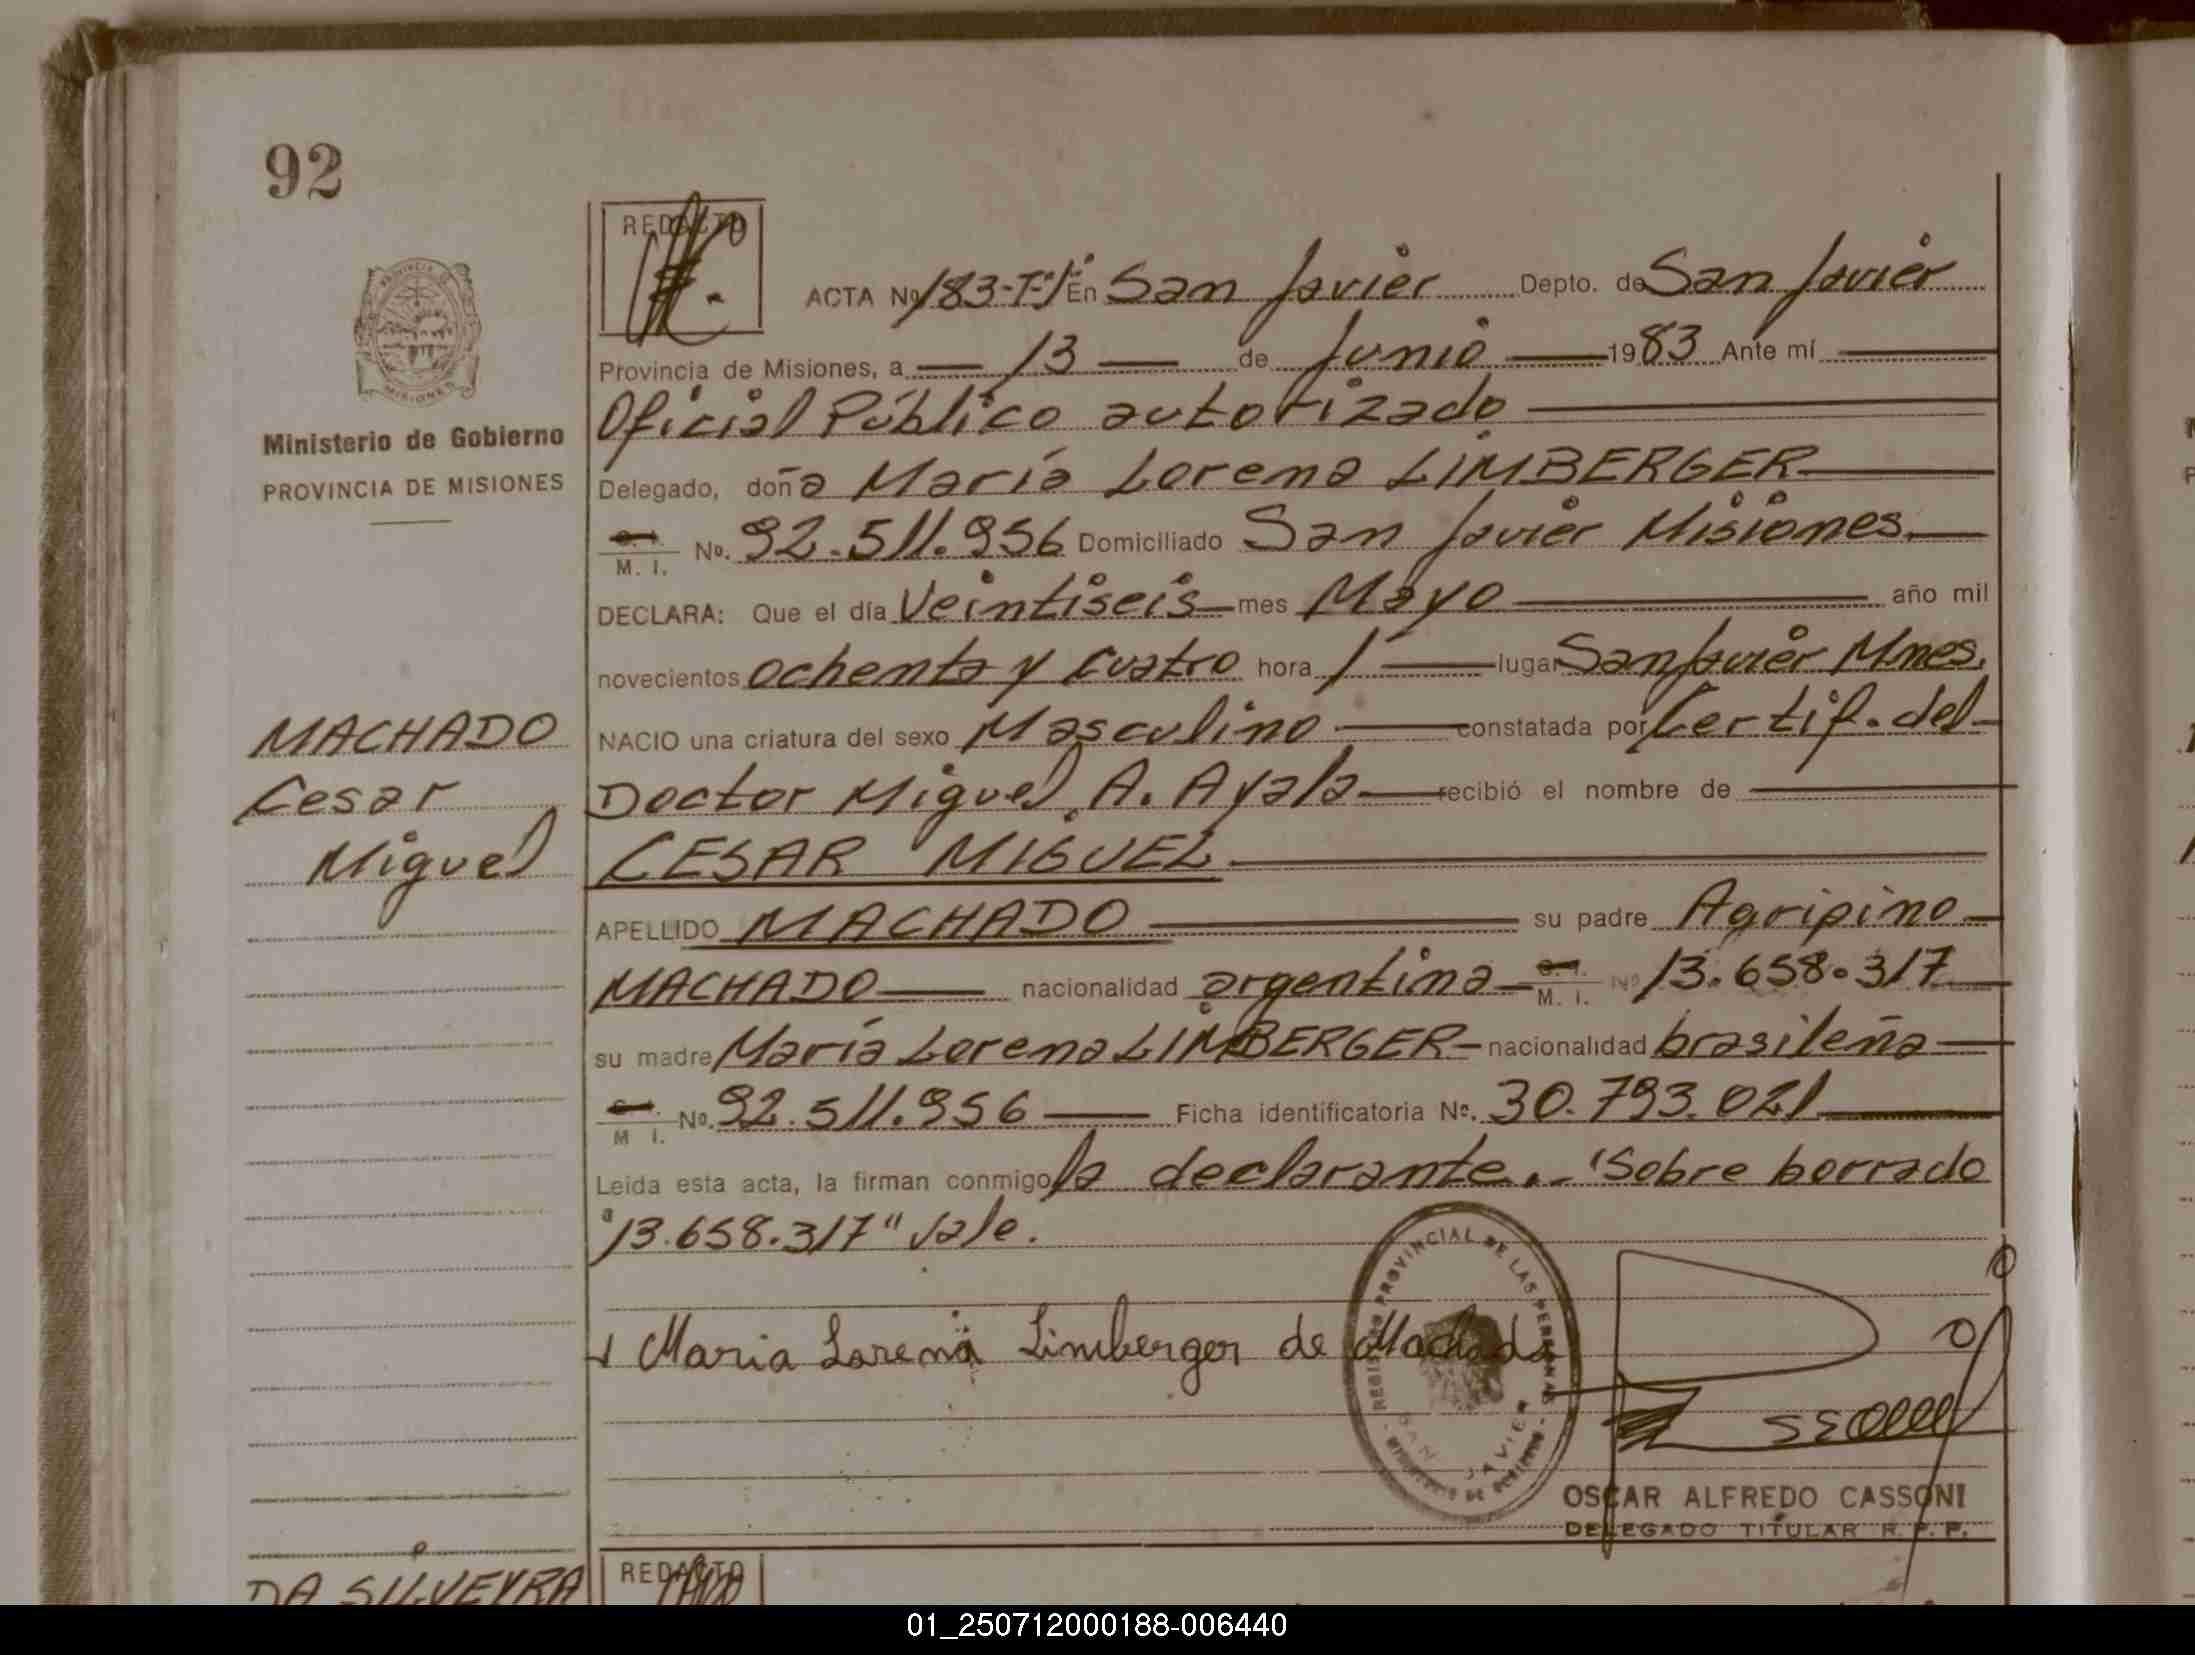 92
REDACTO
ACTA Nº 183-Tº1º En San Javier Depto. de San Javier
Provincia de Misiones, a 13 de Junio 1983 Ante mí
Oficial Público autorizado
Ministerio de Gobierno
PROVINCIA DE MISIONES
Delegado, doña María Lorena LIMBERGER
M. I. Nº. 92.511.956 Domiciliado San Javier Misiones
DECLARA: Que el día Veintiseis mes Mayo año mil
novecientos ochenta y cuatro hora 1 lugar San Javier Mnes.
MACHADO
Cesar
Miguel
NACIO una criatura del sexo Masculino constatada por Certif. del
Doctor Miguel A. Ayala recibió el nombre de
CESAR MIGUEL
APELLIDO MACHADO su padre Agripino
MACHADO nacionalidad argentina C. I. M. I. Nº 13.658.317
su madre María Lorena LIMBERGER nacionalidad brasileña
M I. Nº. 92.511.956 Ficha identificatoria Nº. 30.793.021
Leida esta acta, la firman conmigo la declarante.- "Sobre borrado
"13.658.317" vale.
Maria Lorena Limberger de Machado
REGISTRO PROVINCIAL DE LAS PERSONAS
SAN JAVIER
MINISTERIO DE GOBIERNO
OSCAR ALFREDO CASSONI
DELEGADO TITULAR R. P. P.
DA SILVEYRA
REDACTO
01_250712000188-006440